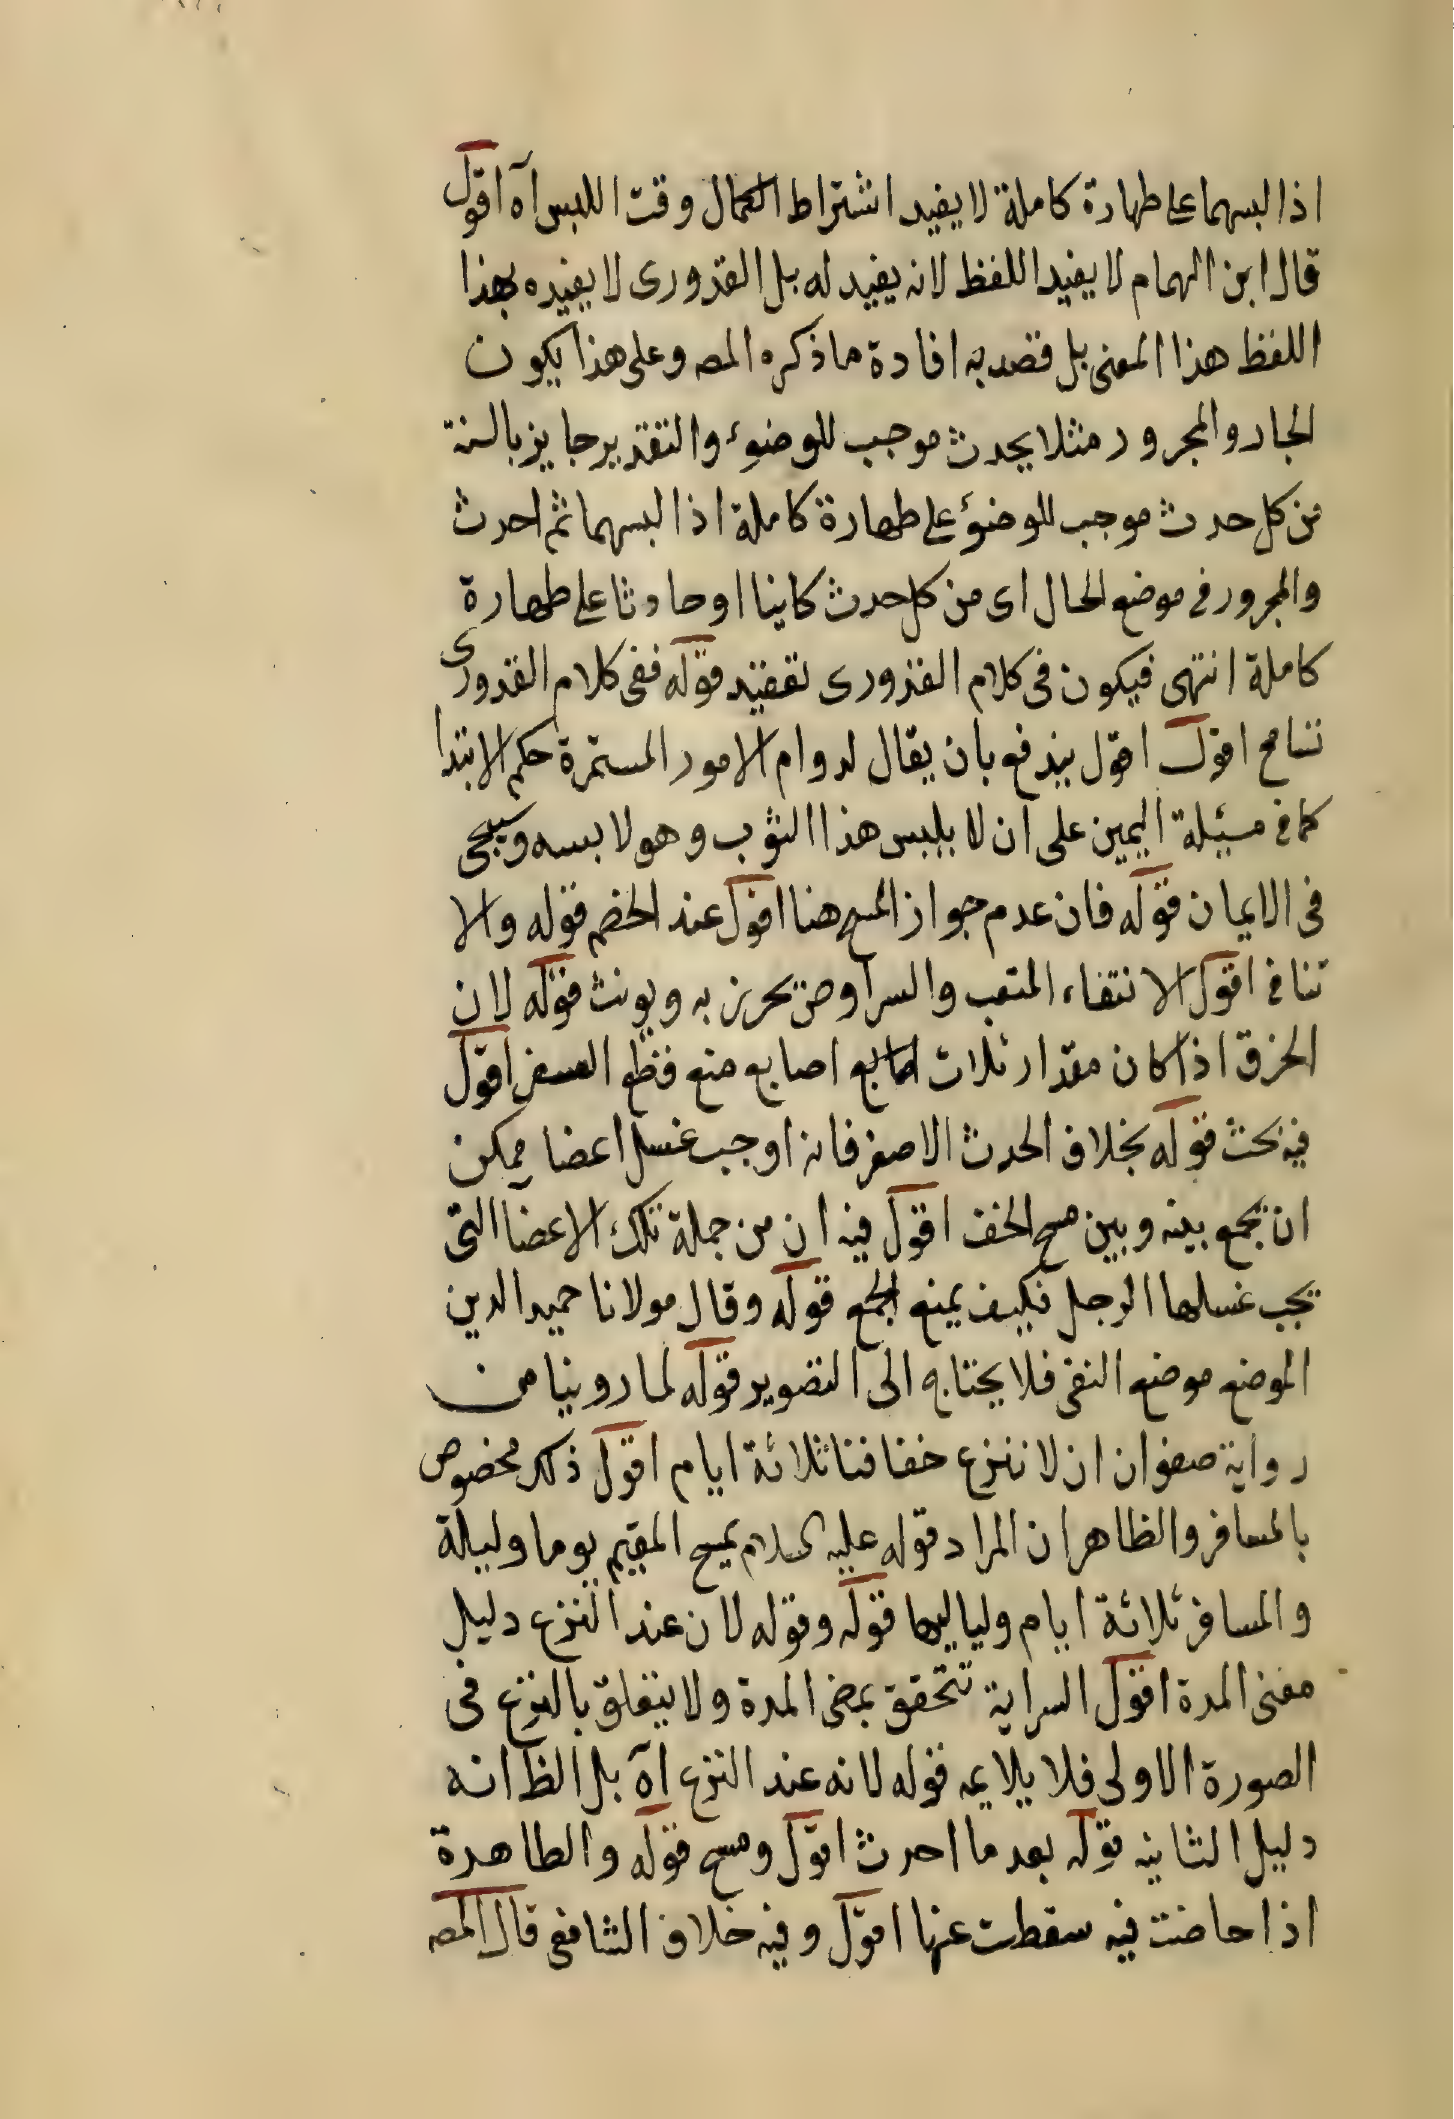 اذا لبسهما على طهارة كاملة لا يفيد اشتراط الكمال وقت اللبس آه اقول
قال ابن الهمام لا يفيد اللفظ لانه يفيد له بل القدورى لا يفيده بهذا
اللفظ هذا المعنى بل قصد به افادة ما ذكره المصـ وعلى هذا يكون
الجار والمجرور مثلا يحدث موجب للوضوء والتقدير جايز بالسنة
من كل حدث موجب للوضوء على طهارة كاملة اذا لبسهما ثم احدث
والمجرور فى موضع الحال اى من كل حدث كاينا او حادثا على طهارة
كاملة انتهى فيكون فى كلام القدورى تعقيد قوله ففى كلام القدورى
تسامح اقول اقول يندفع بان يقال لدوام الامور المستمرة حكم الابتدا
كما فى مسئلة اليمين على ان لا يلبس هذا الثوب وهو لابسه وسيجى
فى الايمان قوله فان عدم جواز المسح هنا اقول عند الخصم قوله والا
تنافى اقول لانتفاء المتعب والسر اوضن يحرىن به ويونث قوله لان
الخرق اذا كان مقدار ثلاث اصابع اصابع منع فقطع السفر اقول
فيه بحث قوله بخلاف الحدث الاصغر فانه اوجب غسل اعضا يمكن
ان يجمع بينه وبين مسح الخف اقول فيه ان من جملة تلك الاعضا التى
يجب غسلها الرجل فكيف يمنع الجمع قوله وقال مولانا حميد الدين
الموضع موضع النفى فلا يحتاج الى التصوير قوله لما روينا من
رواية صفوان ان لا ننزع خفافنا ثلاثة ايام اقول ذلك مخصوص
بالمسافر والظاهر ان المراد قوله عليه السلام يمسح المقيم يوما وليلة
والمسافر ثلاثة ايام ولياليها قوله وقوله لان عند النزع دليل
مضى المدة اقول السراية تتحقق بمضى المدة ولا يتعلق بالنزع فى
الصورة الاولى فلا يلايمه قوله لانه عند النزع آه بل الظ انه
دليل الثانية قوله بعد ما احدث اقول ومسح قوله والطاهرة
اذا حاضت فيه سقطت عنها اقول وفيه خلاف الشافعى قال المصـ